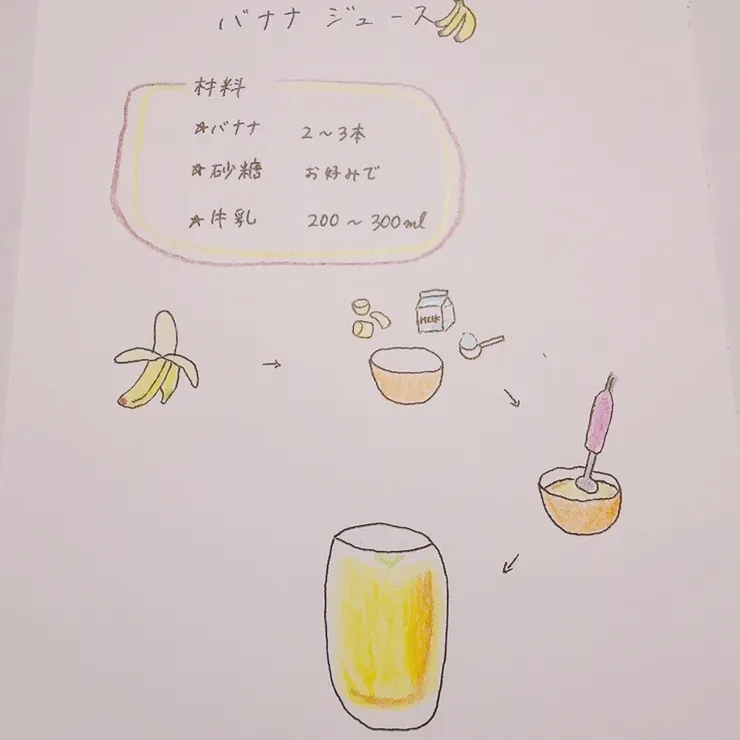 バナナ ジュース
材料
☆バナナ 2～3本
☆砂糖 お好みで
☆牛乳 200～300ml
MILK